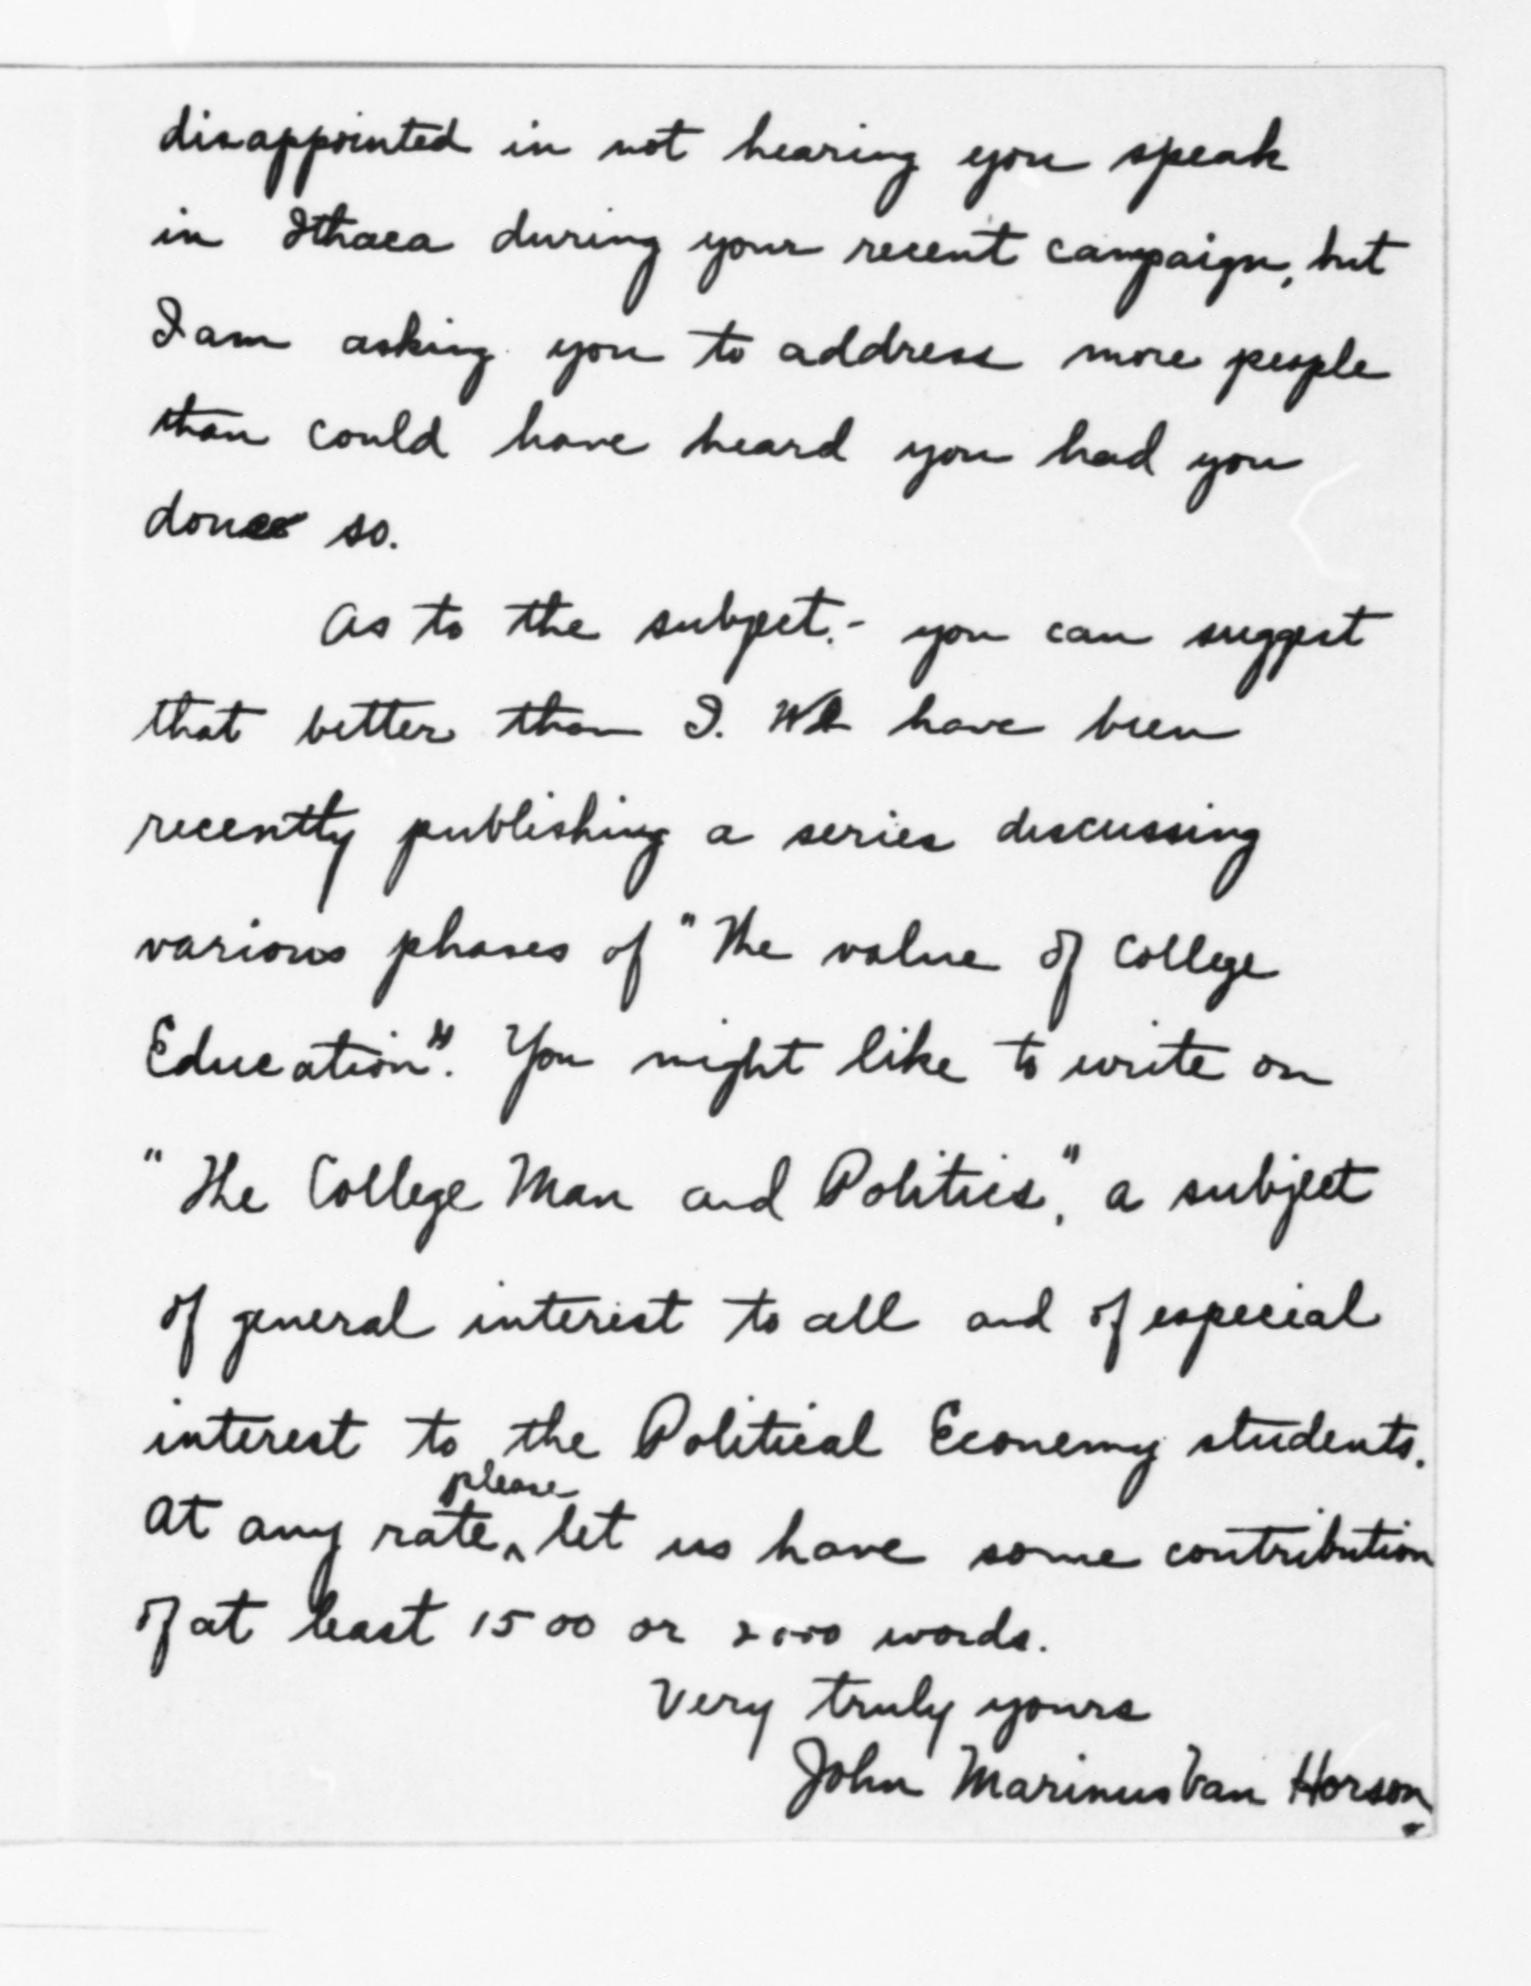 disappointed in not hearing you speak
in Ithaca during your recent campaign, but
I am asking you to address more people
than could have heard you had you
done so.
As to the subject.- you can suggest
that better than I. We have been
recently publishing a series discussing
various phases of "The value of College
Education". You might like to write on
"The College Man and Politics," a subject
of general interest to all and of especial
interest to the Political Economy students.
please
At any rate, ^ let us have some contribution
of at least 1500 or 2000 words.
Very truly yours
John Marinus Van Horson